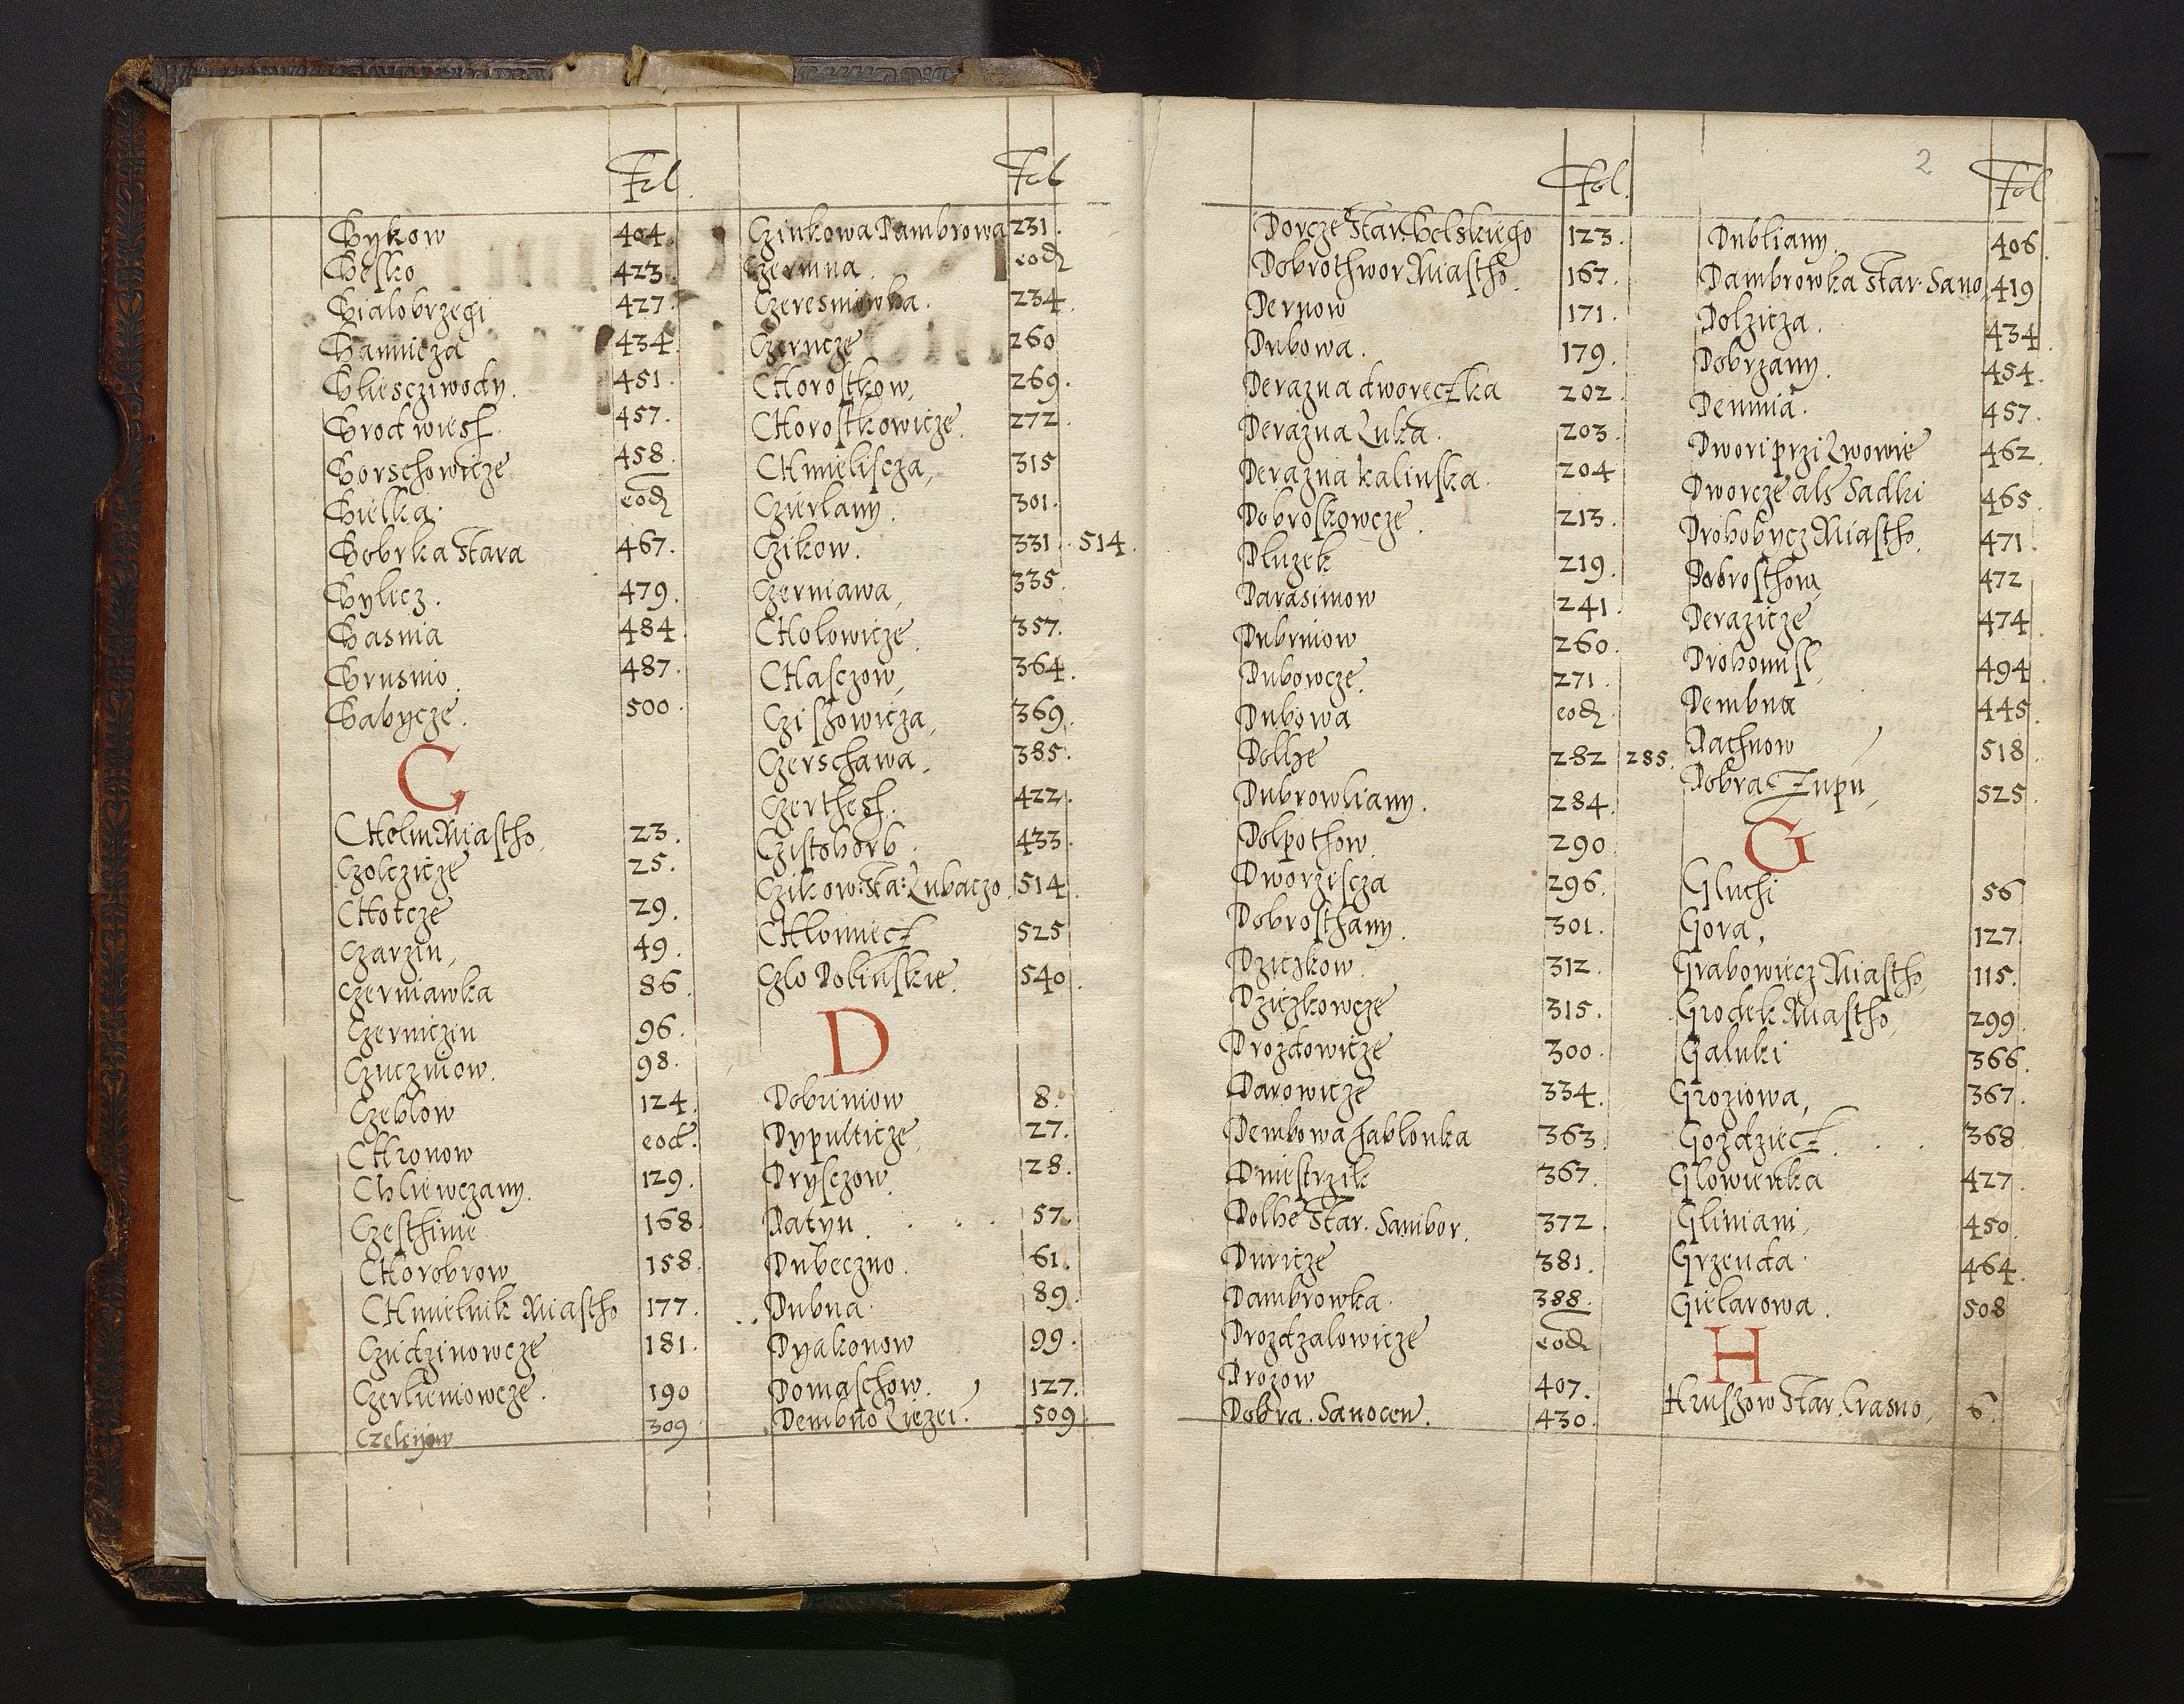 Fol.
Bykow 404.
Besko 423.
Bialobrzegi 427.
Bannicza 434.
Bliesczíwody. 451.
Brod wiesſ. 457.
Borschowicze 458.
Bielka. eod
Bobrka Stara 467.
Bylicz. 479.
Basnia 484.
Brusnio 487.
Babycze. 500.
C
CHelm Miastho, 23.
Czolczicze 25.
CHotcze 29.
Czarzin, 49.
Czerniawka 86.
Czerniczin 96.
Czuczniow. 98.
Czeblow 124.
CHronow eod.
Chliewczany. 129.
Czesthinie 168.
CHorobrow 158.
CHmielnik Miastho 177.
Czudzinowcze 181.
Czerlieniowcze. 190
Czeleyow 309
Fol
Czinkowa Dambrowa 231.
Czermna. eod
Czeresniowka. 234.
Czerncze 260
CHorostkow, 269.
CHorostkowicze. 272.
CHmieliscza, 315
Czierlany. 301.
Czikow. 331. 514.
Czerniawa, 335.
CHolowicze. 357.
CHasczow, 364.
Cziszowicza, 369.
Czerschawa. 385.
Czerthesſ. 422.
Czistohorb. 433.
Czikow: Sta: Lubaczo. 514.
CHlomiecz 525
Czlo Dobinskie. 540.
D
Dobriniow 8.
Dypulticze, 27.
Drysczow. 28.
Datyn. 57.
Dubeczno. 61.
Dubna. 89.
Dyakonow 99.
Domaschow. 127.
Dembno Liezei. 509
Fol.
Dorcze Star. Belskiego 123.
Dobrothwor Miastho. 167.
Dernow 171.
Dubowa. 179.
Derazna dworeczka 202.
Derazna Luka. 203.
Derazna kalinska. 204
Dobroskowcze. 213.
Dluzek 219.
Darasimow 241.
Dubriniow 260.
Dubowcze. 271.
Dubowa eod.
Dolhe 282 285.
Dubrowliany. 284.
Dolpothow. 290.
Dworzescza 296.
Dobrosthany. 301.
Dziczkow. 312.
Dziczkowcze 315.
Drozdowicze 300.
Darowicze 334.
Dembowa Jablonka 363.
Dniestrzik 367.
Dolhe Star. Sambor. 372.
Duricze 381.
Dambrowka. 388.
Drozdzalowicze eod
Drozow 407.
Dobra. Sanocen. 430.
2
Fol
Dubliany. 406.
Dambrowka Star. Sano. 419
Dolzicza. 434.
Dobrzany. 454.
Demnia. 457.
Dwori przi Lwowie 462.
Dworcze als Sadki 465.
Drohobycz Miastho. 471.
Dobrosthow, 472
Derazicze 474
Drohomisl, 494
Dembna 445.
Dachnow 518.
Dobra Zupn, 525.
G
Gluchi 56
Gora, 127.
Grabowiecz Miastho, 115.
Grodek Miastho, 299.
Galuki 366.
Groziowa, 367.
Gozdziecz. 368.
Glowienka 427.
Gliniani, 450.
Grzenda. 464.
Gielarowa. 508
H
Hruszow Star. Crasno, 6.